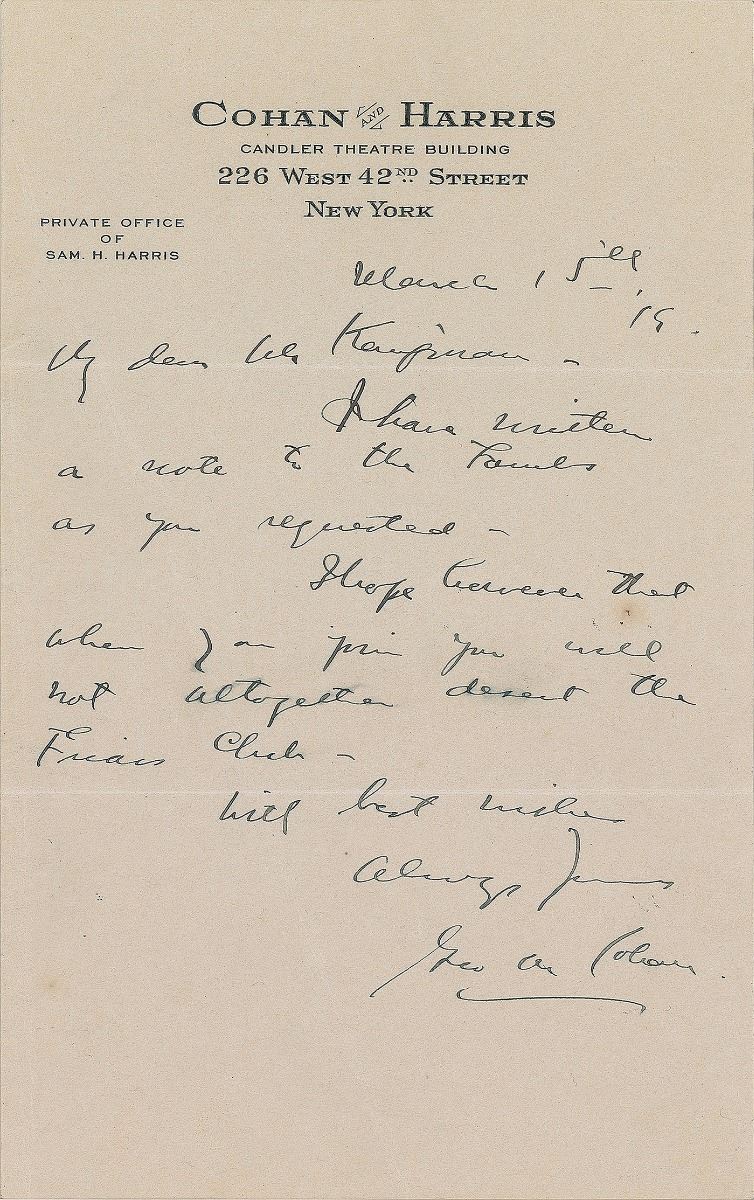 COHAN AND HARRIS
CANDLER THEATRE BUILDING
226 WEST 42ND STREET
NEW YORK
PRIVATE OFFICE
OF
SAM. H. HARRIS
March 15th,
'19.
My dear Mr Kaufman –
I have written
a note to the Lambs
as you requested –
I hope however that
when you join you will
not altogether desert the
Friars Club –
With best wishes
Always Yours
Geo M Cohan.